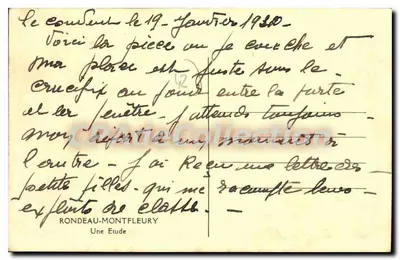 le couvent le 19 - Janvier 1930 -
Voici la pièce ou je couche et
ma place est juste sous le
crucifix au fond entre la porte
et la fenêtre - J'attends toujours
mon report à un moment à
l'autre - J'ai Reçu une lettre des
petites filles - qui me racompte leurs
exploits de classe. -
RONDEAU-MONTFLEURY
Une Etude